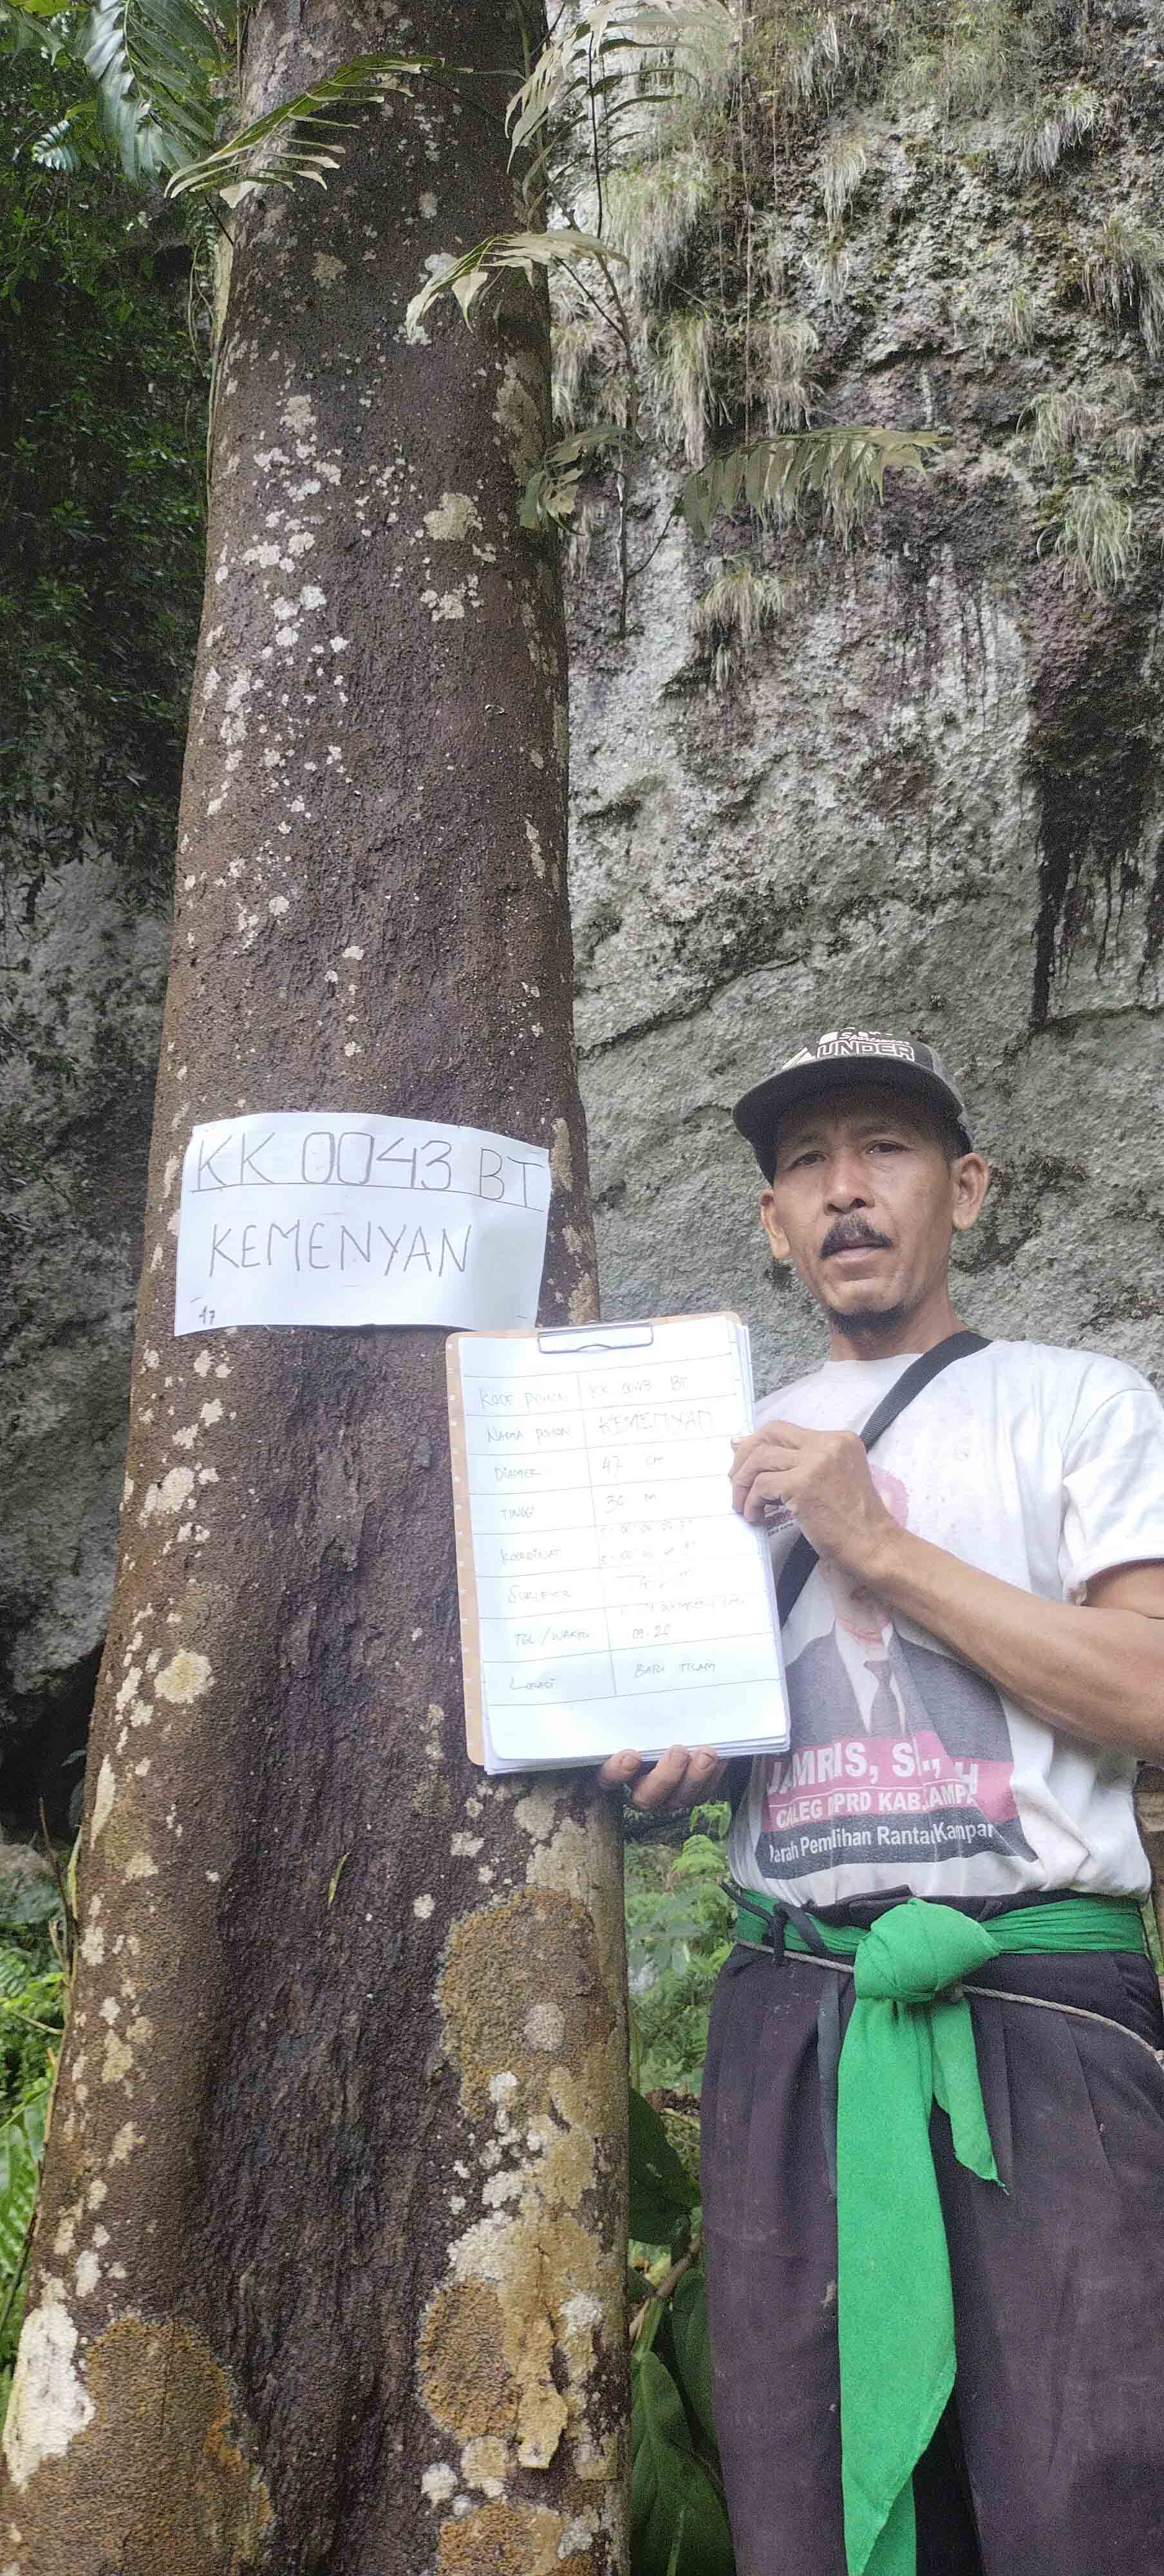 UNDER
KK 0043 BT
KEMENYAN
47
KODE POHON KK 0043 BT
NAMA POHON KEMENYAN
DIAMER 47 CM
TINGGI 30 M
KOORDINAT
SURVEYOR
TGL / WAKTU 09.20
LOKASI BATU TILAM
JAMRIS, S
CALEG DPRD KAB.
Pemilihan Rantau Kampar